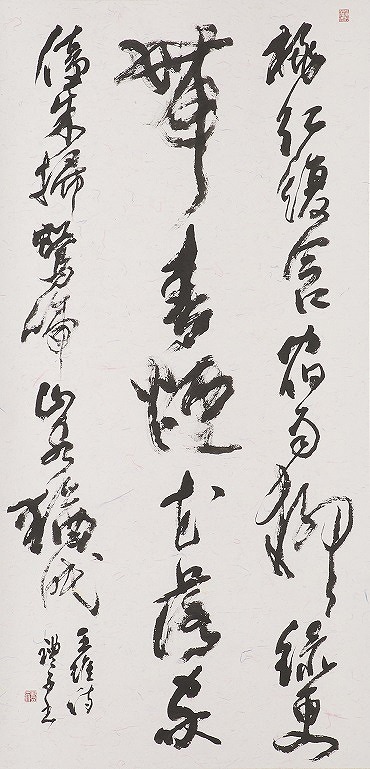 桃紅復含宿雨柳綠更
帶春煙花落家
僮未掃鶯啼山客猶眠
王維詩